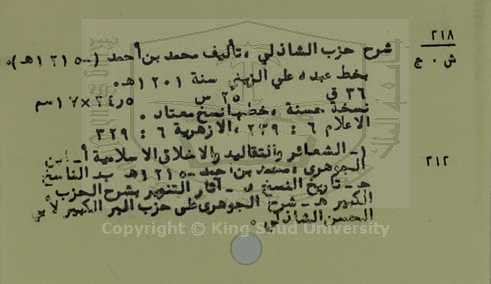 ٢١٨
ش . ج
شرح حزب الشاذلي ، تأليف محمد بن أحمد (٠٠-١٢١٥هـ)٠
بخط عبد الله علي الزيني سنة ١٢٠١هـ٠
٣٦ ق ٢٥ س ٢٤٫٥×١٧سم
نسخة حسنة ، خطها نسخ معتاد .
الاعلام ٦ : ٢٣٩ ، الازهرية ٦ : ٣٢٩
٢١٢
أ- الشعائر والتقاليد والاخلاق الاسلامية أ- ابن
الجوهري ، محمد بن احمد -١٢١٥هـ ب- الناسخ
جـ- تاريخ النسخ د - آثار التنوير بشرح الحزب
الكبير هـ- شرح الجوهرى على حزب البر الكبير لأبي
الحسن الشاذلي ٠
Copyright © King Saud University